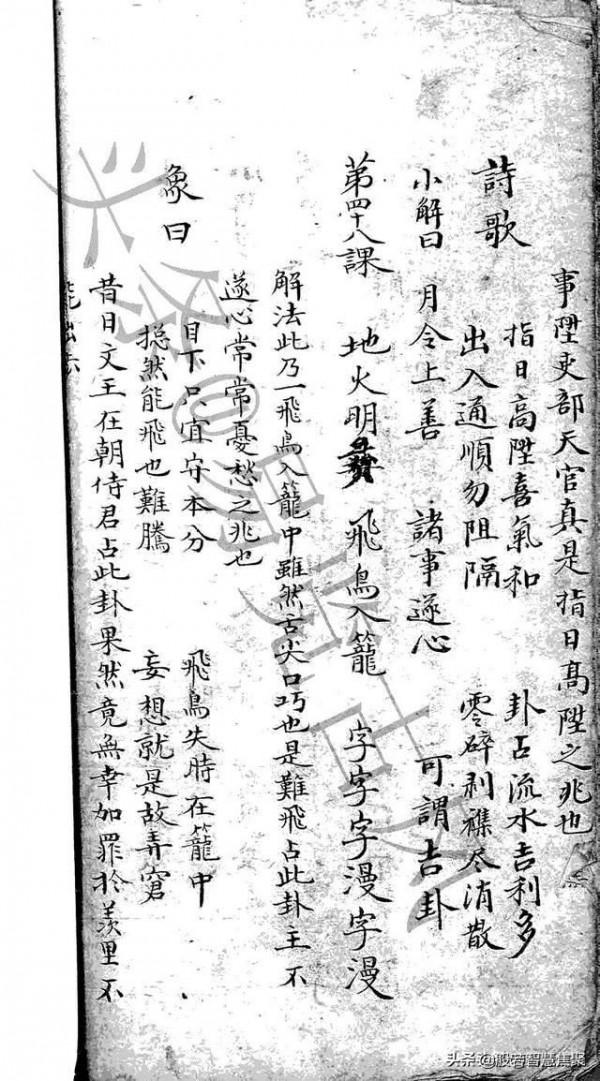 事陞吏部天官真是指日高陞之兆也
詩歌
指日高陞喜氣和 卦占流水吉利多
出入通順勿阻隔 零碎剥襍尽消散
小解曰 月令上善 諸事遂心 可謂吉卦
第四十八課 地火明 飛鳥入籠 字字字漫字漫
解法此乃一飛鳥入籠中雖然舌尖口巧也是難飛占此卦主不
遂心常常憂愁之兆也
象曰
目下只宜守本分 飛鳥失時在籠中
總然能飛也難騰 妄想就是故弄窮
昔日文王在朝侍君占此卦果然竟無辜加罪於羨里不
头条@般若智慧集聚